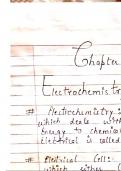 Chapter
Electrochemistr
# Electrochemistry :
which deals with
energy to chemica
Electrical is called
# Electrical Cell:
which either